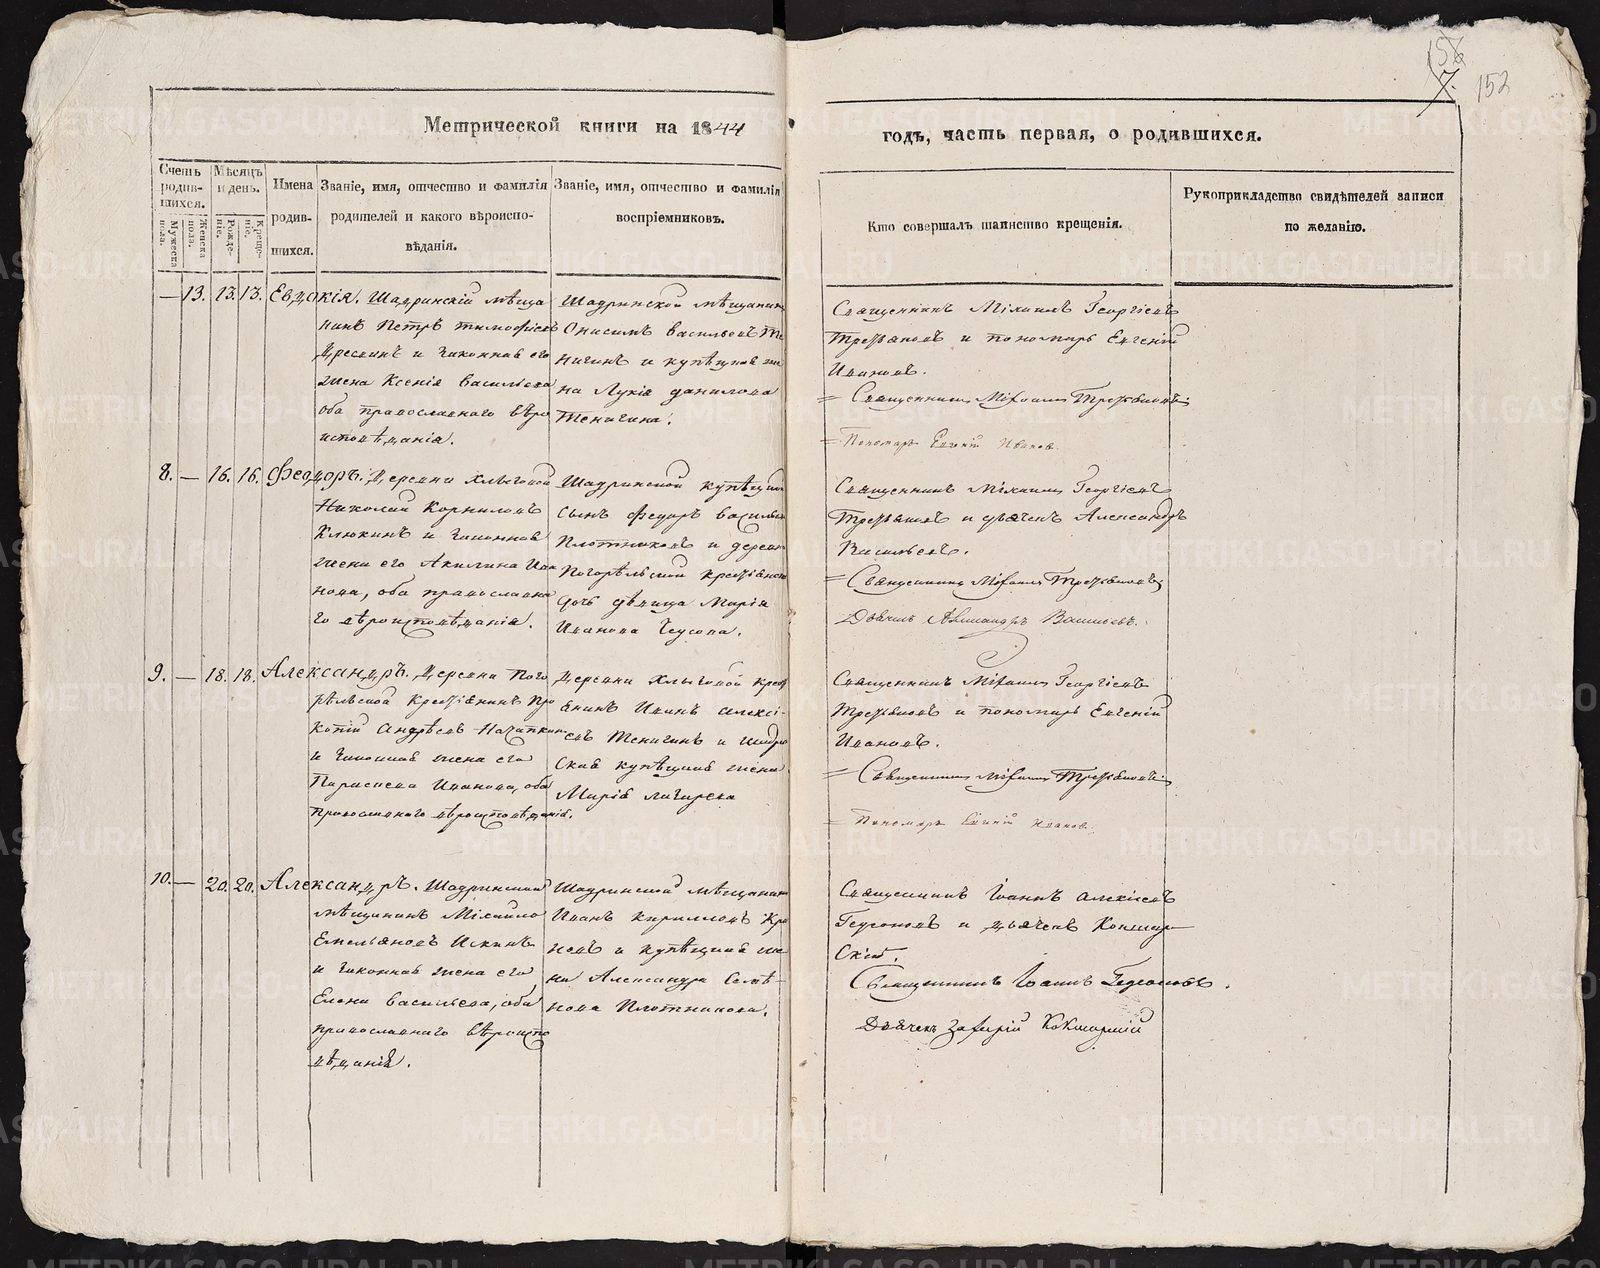 156
7.
152
Метрической книги на 1844
годъ, часть первая, о родившихся.
Счетъ родив-шихся.
Мужеска пола.
Женска пола.
Мѣсяцъ и день.
Рожде-нія.
Креще-нія.
Имена родив-шихся.
Званіе, имя, отчество и фамилія
родителей и какого вѣроиспо-
вѣданія.
Званіе, имя, отчество и фамилія
воспріемниковъ.
Кто совершалъ таинство крещенія.
Рукоприкладство свидѣтелей записи
по желанію.
— 13. 13. 13. Евдокія. Шадринскій мѣща
нинъ Петръ Тимофѣевъ
и законная его
жена Ксенія Васильева
оба православнаго вѣро
исповѣданія.
Шадринской мѣщанинъ
Онисимъ Васильевъ Те
нигинъ и купѣцкая же
на Лукія Данилова
Тенигина.
Священникъ Михаилъ Георгіевъ
Третьяковъ и пономарь Евгеній
Ивановъ.
= Священникъ Михаилъ Третьяковъ
= Пономарь Евгеній Ивановъ.
8. — 16. 16. Феодоръ. Деревни Хлызовой
Николай Корниловъ
Клюкинъ и законная
жена его Акилина Ива
нова, оба православна
го вѣроисповѣданія.
Шадринской купѣцкій
сынъ Федоръ Василье
Плотниковъ и деревни
Погорѣльской крестьянская
дочь дѣвица Марія
Иванова
Священникъ Михаилъ Георгіевъ
Третьяковъ и дьячекъ Александръ
Васильевъ.
= Священникъ Михаилъ Третьяковъ
Дьячекъ Александръ Васильевъ.
9. — 18. 18. Александръ. Деревни Пого
рѣльской крестьянинъ Про
копій Андрѣевъ
и законная жена его
Параскева Иванова, оба
православнаго вѣроисповѣданія.
Деревни Хлызовой крестья
анинъ Иванъ Алексі-
евъ Тенигинъ и Шадрин
ская купѣцкая жена
Марія
Священникъ Михаилъ Георгіевъ
Третьяковъ и пономарь Евгеній
Ивановъ.
= Священникъ Михаилъ Третьяковъ
= Пономарь Евгеній Ивановъ.
10. — 20. 20. Александръ. Шадринской
мѣщанинъ Михайло
Емельяновъ Искинъ
и законная жена его
Елена Васильева, оба
православнаго вѣроиспо
вѣданія.
Шадринской мѣщанинъ
Иванъ Кирилловъ
и купѣцкая же
на Александра Семе-
нова Плотникова.
Священникъ Іоаннъ Алексіевъ
Гедеоновъ и дьячекъ Кокшар-
скій.
Священникъ Іоаннъ Гедеоновъ.
Дьячекъ Захарій Кокшарскій
METRIKI.GASO-URAL.RU